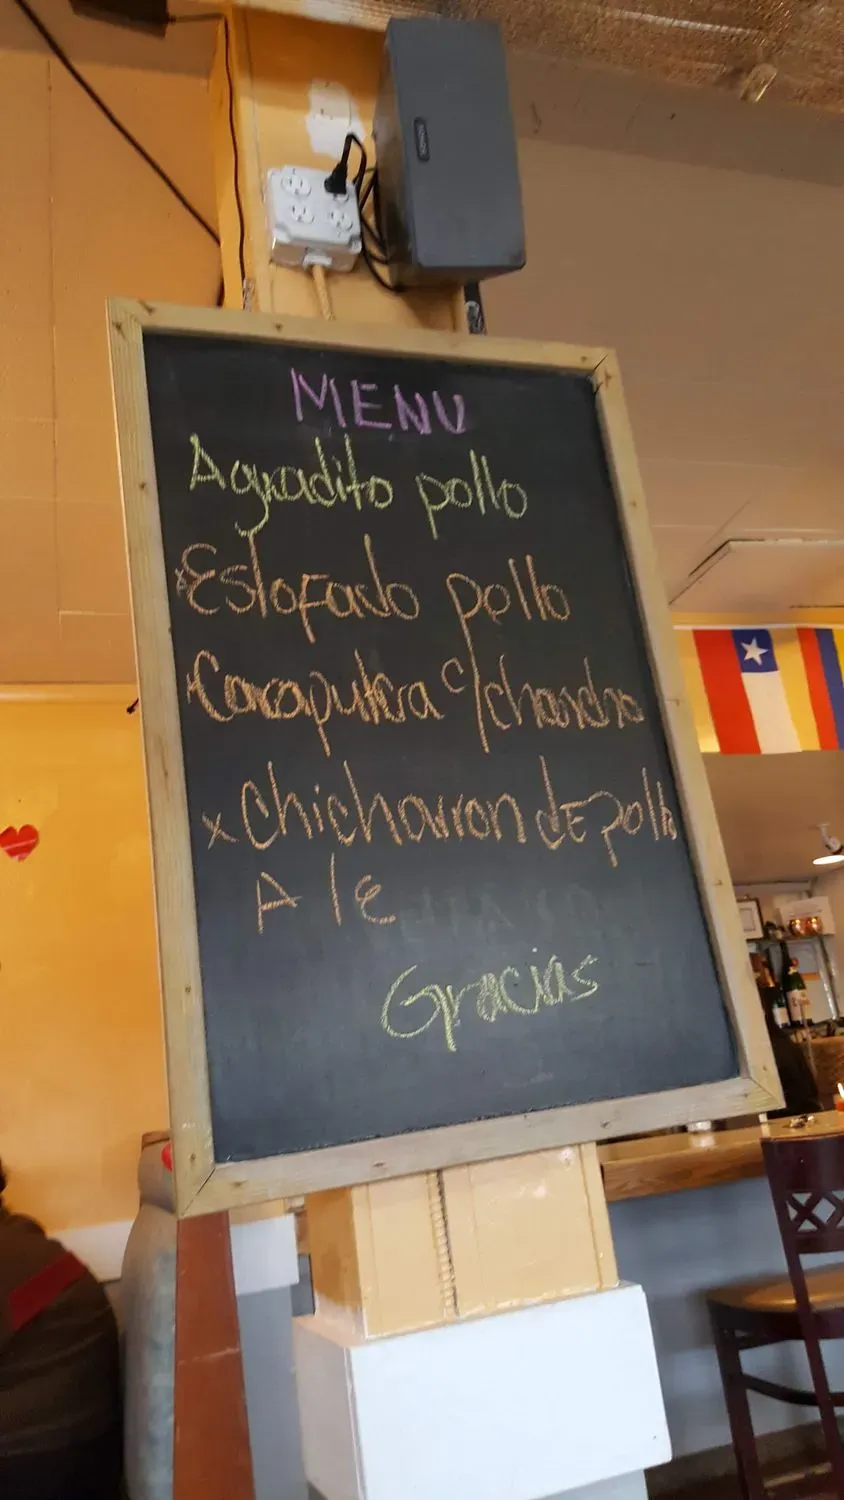 SONOS
MENU
Aguadito pollo
Estofado pollo
Carapulcra c/chancho
x Chicharron de pollo
A le
Gracias